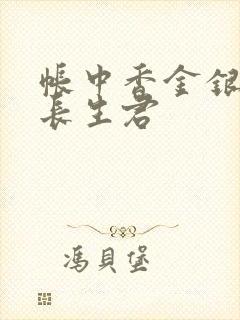 帳中香金銀
長生君
馮貝堡